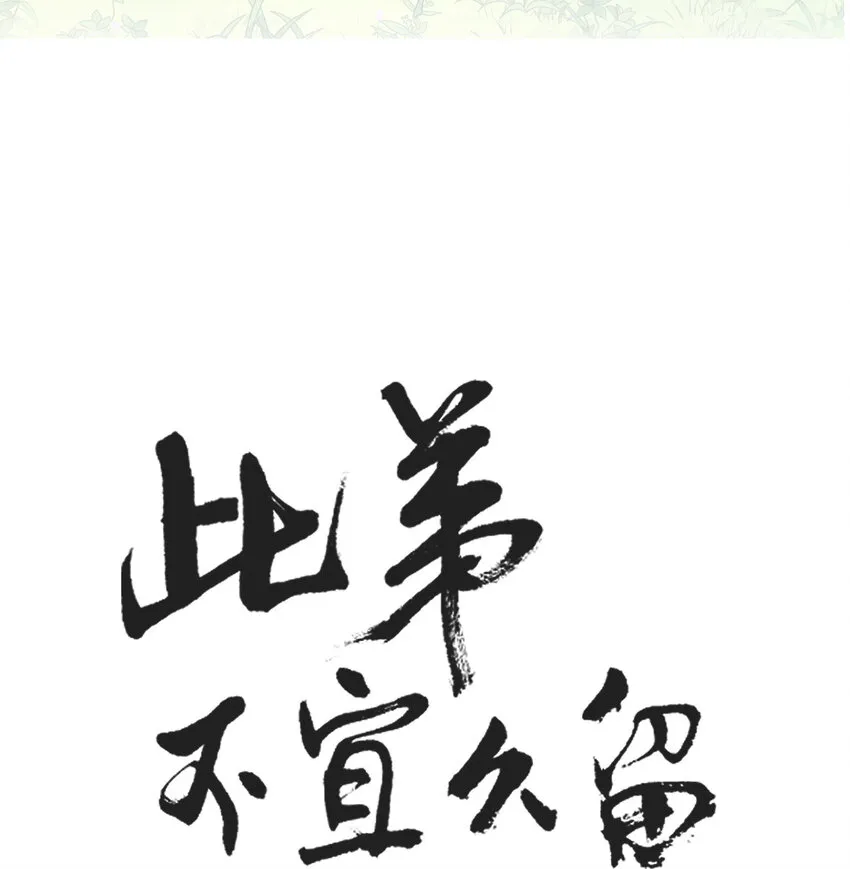 此弟
不宜久留